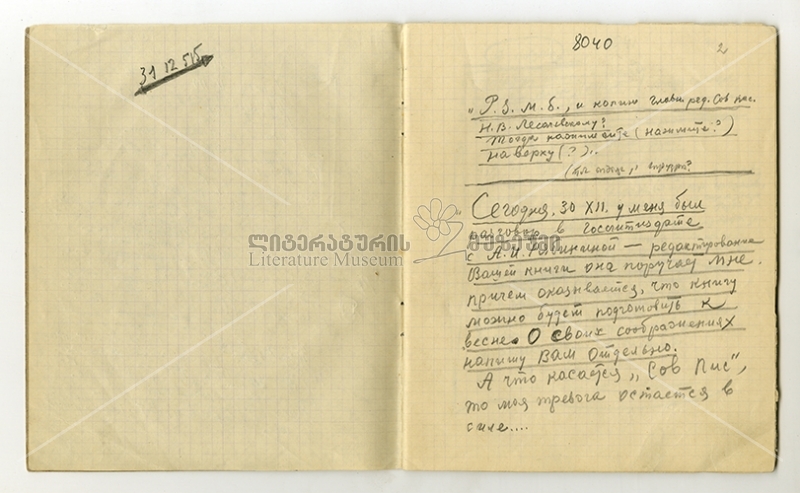 31 12 515
8040
2
"P.S. М.б., и копию главн. ред. Сов пис.
Н.В. Лесючевскому?
Тогда нажмите (нажмите?)
на верху (?)..
"Сегодня, 30 XII. у меня был
разговор в Гослитиздате
с А.И. Рябининой — редактирование
Вашей книги она поручает мне.
причем оказывается, что книгу
можно будет подготовить к
весне. О своих соображениях
напишу Вам отдельно.
А что касается „Сов Пис",
то моя тревога остается в
силе....
ლიტერატურის მუზეუმი
Literature Museum